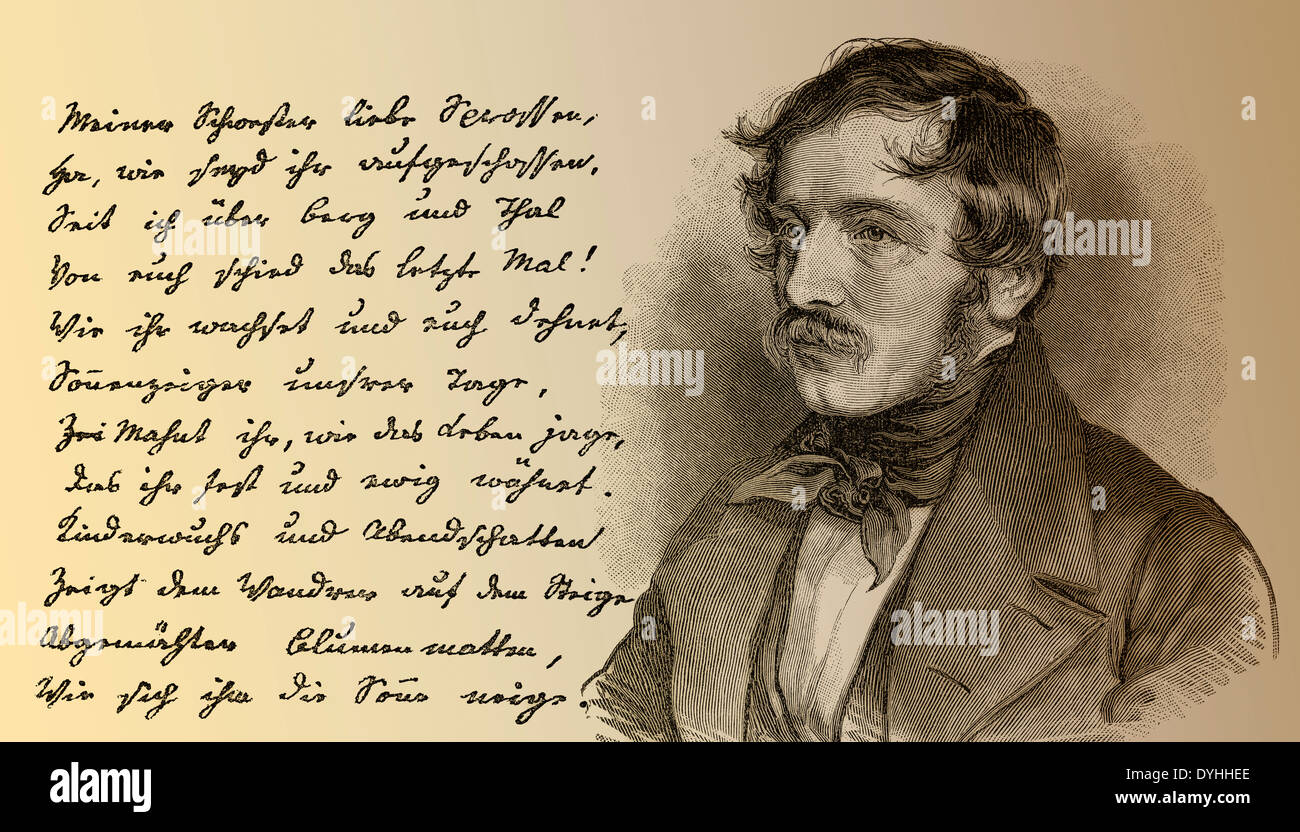 Meiner Schwester liebe Sprossen,
Ha, wie seyd ihr aufgeschossen,
Seit ich über Berg und Thal
Von euch schied das letzte Mal!
Wie ihr wachset und euch dehnet,
Sonnenzeiger unsrer Tage,
Mahnt ihr, wie das Leben jage,
Das ihr fest und ewig wähnet.
Kinderwuchs und Abendschatten
Zeigt dem Wandrer auf dem Steige
Abgemähter Blumenmatten,
Wie sich ihm die Sonne neige.
alamy
a
alamy stock photo
DYHHEE
www.alamy.com